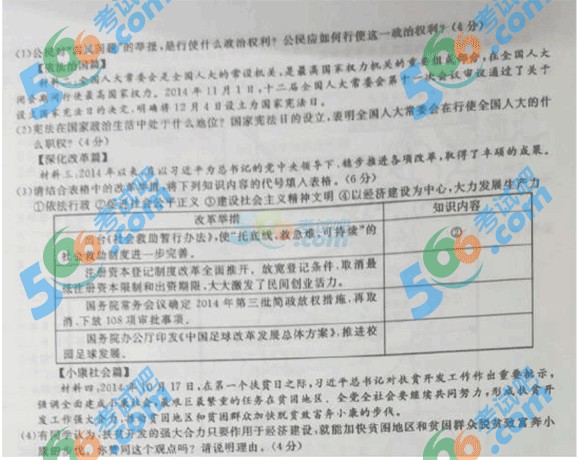 (1)公民对“四风问题”的举报,是行使什么政治权利? 公民应如何行使这一政治权利? (4分)
【依法治国篇】
材料二:全国人大常委会是全国人大的常设机关,是最高国家权力机关的重要组成部分,在全国人大
闭会期间行使最高国家权力。2014年11月1日,十二届全国人大常委会第十一次会议审议通过了关于
设立国家宪法日的决定,明确将12月4日设立为国家宪法日。
(2)宪法在国家政治生活中处于什么地位? 国家宪法日的设立,表明全国人大常委会在行使全国人大的什
么职权? (4分)
【深化改革篇】
材料三:2014年以来,在以习近平为总书记的党中央领导下,稳步推进各项改革,取得了丰硕的成果。
(3)请结合表格中的改革举措,将下列知识内容的代号填入表格。(6分)
①依法行政 ②促进社会公平正义 ③建设社会主义精神文明 ④以经济建设为中心,大力发展生产力
改革举措 知识内容
出台《社会救助暂行办法》,使“托底线、救急难、可持续”的 ②
社会救助制度进一步完善。
注册资本登记制度改革全面推开,放宽登记条件,取消最
低注册资本限制和出资期限,大大激发了民间创业活力。
国务院常务会议确定2014年第三批简政放权措施,再取
消、下放108项审批事项。
国务院办公厅印发《中国足球改革发展总体方案》,推进校
园足球发展。
【小康社会篇】
材料四:2014年10月17日,在第一个扶贫日之际,习近平总书记对扶贫开发工作作出重要批示,
强调全面建成小康社会,最艰巨最繁重的任务在贫困地区、全党全社会要继续共同努力,形成扶贫开
发工作强大合力,推动贫困地区和贫困群众加快脱贫致富奔小康的步伐。
(4)有同学认为,扶贫开发的强大合力只要作用于经济建设,就能加快贫困地区和贫困群众脱贫致富奔小
康的步伐。你赞同这个观点吗? 请说明理由。(4分)
566考试吧
.com
566考试吧
.com
566考试吧
.com
566考试吧
.com